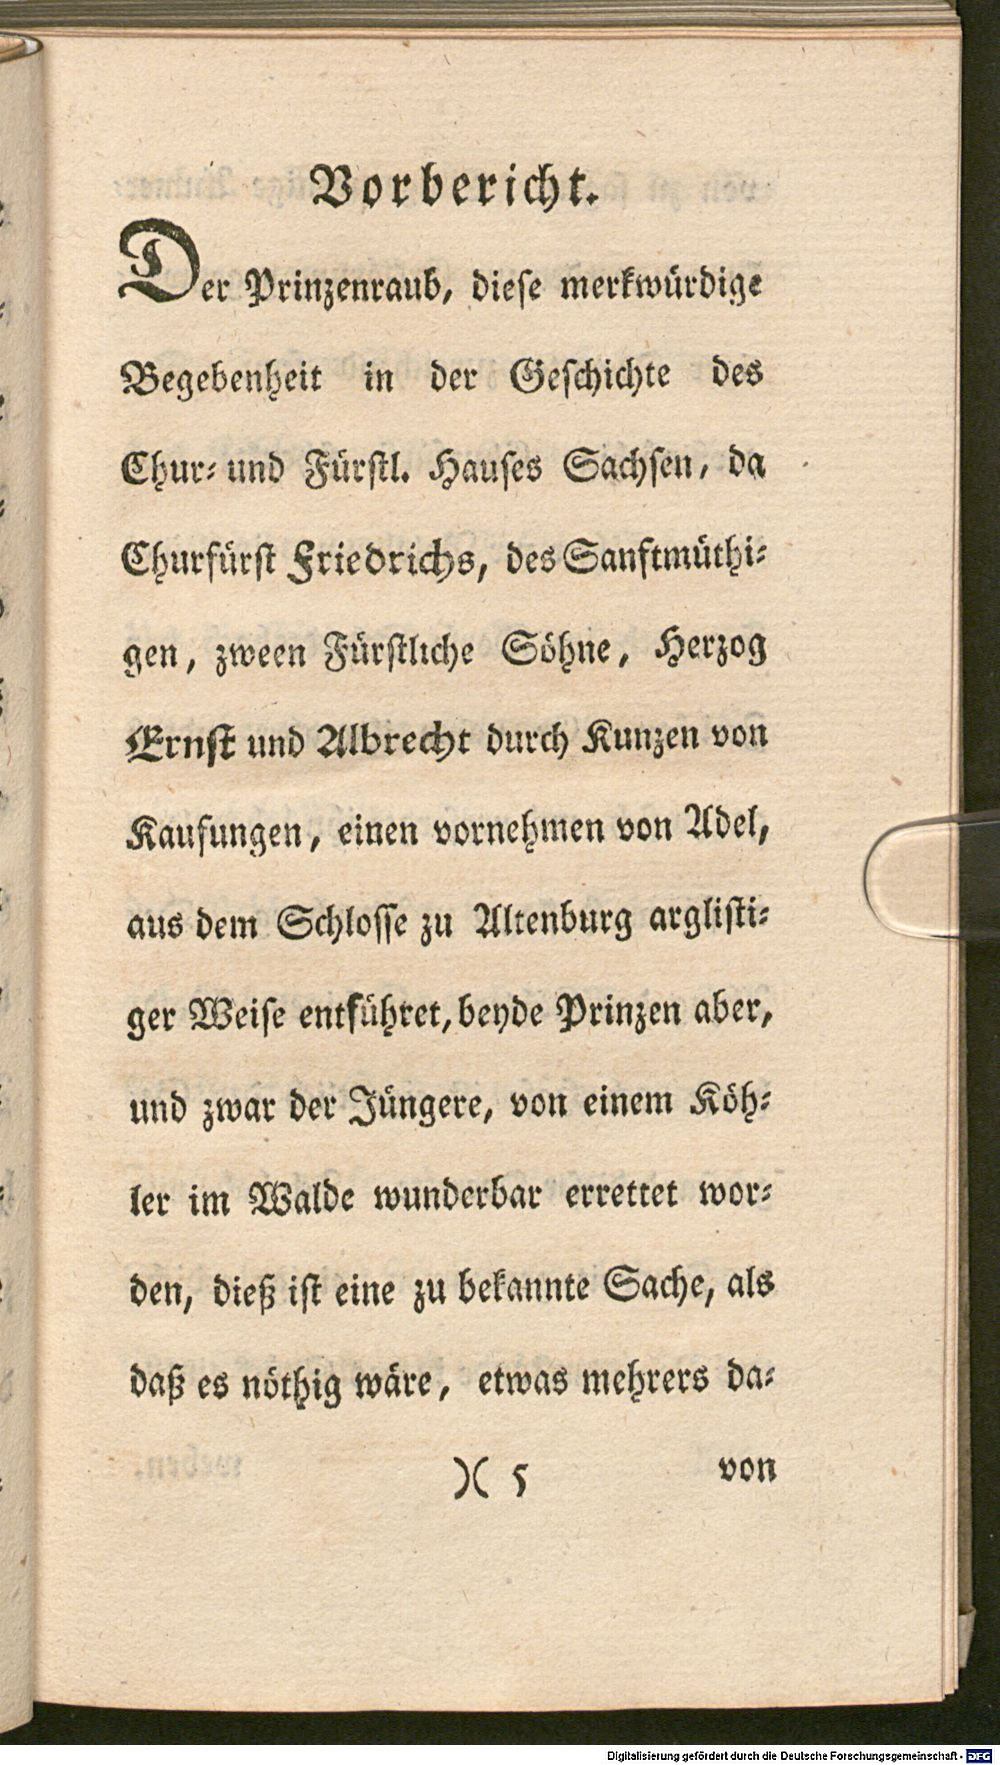 Vorbericht.
Der Prinzenraub, dieſe merkwürdige
Begebenheit in der Geſchichte des
Chur⸗ und Fürſtl. Hauſes Sachſen, da
Churfürſt Friedrichs, des Sanftmüthi⸗
gen, zween Fürſtliche Söhne, Herzog
Ernſt und Albrecht durch Kunzen von
Kaufungen, einen vornehmen von Adel,
aus dem Schloſſe zu Altenburg argliſti⸗
ger Weiſe entführet, beyde Prinzen aber,
und zwar der Jüngere, von einem Köh⸗
ler im Walde wunderbar errettet wor⸗
den, dieß iſt eine zu bekannte Sache, als
daß es nöthig wäre, etwas mehrers da⸗
)( 5 von
Digitalisierung gefördert durch die Deutsche Forschungsgemeinschaft - DFG